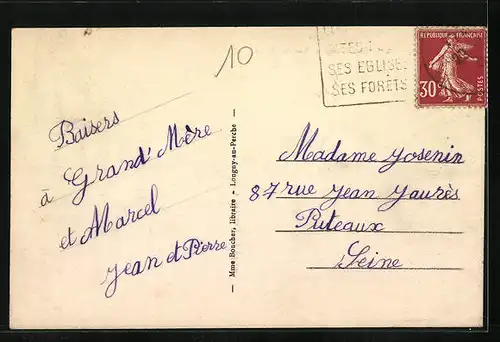 10
SES EGLISES
SES FORÊTS
REPUBLIQUE FRANÇAISE
30
POSTES
Baisers
à Grand' Mère
et Marcel
Jean et Pierre
Mme Boucher, libraire - Longny-au-Perche
Madame Josenin
87 rue Jean Jaurès
Puteaux
Seine